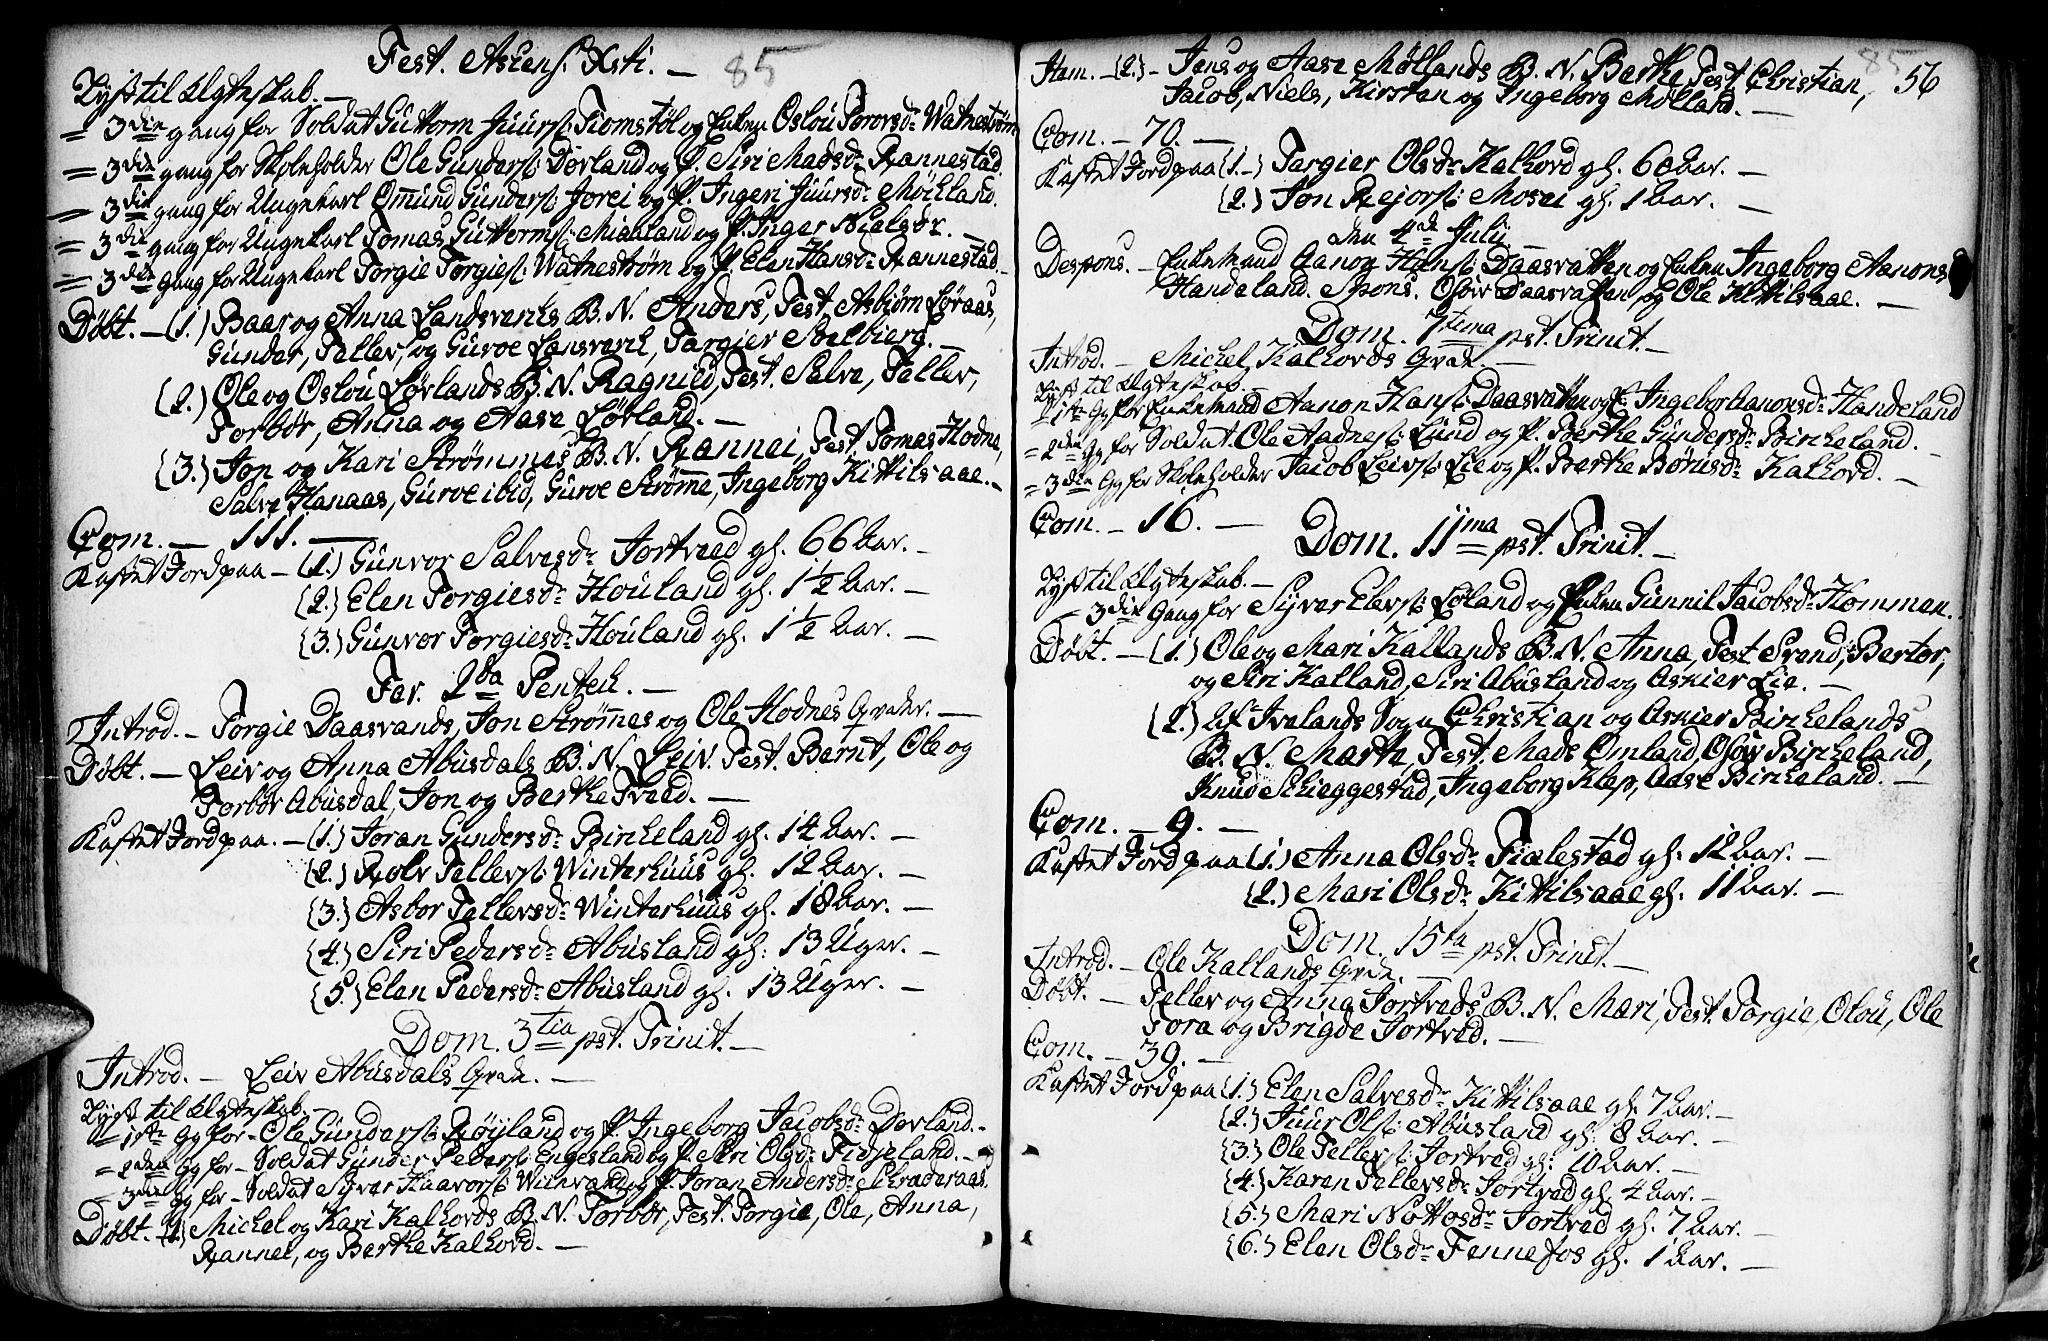 Fest. Ascens. Xsti. – 85
Lyst til Ægteskab. –
= 3die gang for Soldat Guttorm Juurs: Tiomstøl og Enken Oslou Torovsdr Watnestrøm
= 3die gang for Skoleholder Ole Gunders: Dørland og P. Siri Madsdr Rannestad.
= 3die gang for Ungekarl Omund Gunders: Jorei og P. Ingeri Juursdr Møilland.
= 3die gang for Ungekarl Tomas Guttorms: Miaaland og P. Inger Nielsdr. –
= 3die gang for Ungekarl Torgie Torgies: Watnestrøm og P. Elen Hansdr Rannestad. –
Døbt. – (1.) Baar og Anna Landsverks B. N. Anders, Test. Asbiørn Løraas,
Gunder, Tellev, og Guroe Lansverk, Targier Stelbierg. –
(2.) Ole og Oslou Lørlands B. N. Ragnild, Test. Salve, Tellev,
Torbor, Anna og Aase Lørland. –
(3.) Jon og Kari Strømmes B. N. Rannei, Test. Tomas Hodne,
Salve Hanaas, Guroe ibid, Guroe Strømme, Ingeborg Kittilsaae. –
Com. – 111. –
Kastet Jord paa – (1.) Gunvor Salvesdr Tortved gl. 66 Aar. –
(2.) Elen Torgiesdr Houland gl. 1½ Aar. –
(3.) Gunvor Torgiesdr Houland gl. 1½ Aar. –
Fer. 2da Pentech. –
Introd. – Torgie Daasvands, Jon Strømmes og Ole Hodnes Qvder. –
Døbt. – Leiv og Anna Abusdals B. N. Leiv. Test. Bernt, Ole og
Torbor Abusdal, Jon og Berthe Tved. –
Kastet Jord paa. – (1.) Joran Gundersdr Birkeland gl. 14 Aar. –
(2.) Rolv Tellevs: Winterhuus gl. 12 Aar. –
(3.) Asbor Tellevsdr Winterhuus gl. 18 Aar. –
(4.) Siri Pedersdr Abusland gl. 13 Uger. –
(5.) Elen Pedersdr Abusland gl. 13 Uger. –
Dom. 3tia pst. Trinit. –
Introd. – Leiv Abusdals Qvde. –
Lyst til Ægteskab.
= 1ste Gg for – Ole Gunders: Røyland og P. Ingeborg Jacobsdr Dovland. –
= 2den Gg for – Soldat Gunder Peders: Engesland og P. Siri Olsdr Fidjeland. –
= 3die Gg for – Soldat Syver Haavors: Wiinvand og P. Joran Andersdr Skraderaas.
Døbt. (1.) Michel og Kari Kalhovds B. N. Torbor, Test. Torgie, Ole, Anna,
Rannei, og Berthe Kalhovd. –
Hem. – (2.) – Jens og Aase Møllands B. N. Berthe, Test. Christian, 85 56
Jacob, Niels, Kirsten og Ingeborg Mølland. –
Com. – 70. –
Kastet Jord paa (1.–) Targier Olsdr Kalhovd gl. 60 Aar. –
(2.) Jon Rejors: Mosei gl. 1 Aar. –
den 4de Julii.
Despons. – Enkemand Aanon Hans: Daasvatten og Enken Ingeborg Aanonsdr
Handeland. Spons. Osuv Daasvatten og Ole Kittilsaae. –
Dom. 7tema pst. Trinit. –
Introd. – Michel Kalhovds Qvde. –
Lyst til Ægteskab. –
= 1ste Gg for Enkemand Aanon Hans: Daasvatten og E. Ingebor Aanonsdr Handeland
= 2den Gg for Soldat Ole Aadnes: Lund og P. Berthe Gundersdr Birkeland. –
= 3die Gg for Skoleholder Jacob Leivs: Lie og P. Berthe Børiusdr Kalhovd. –
Com. – 16. –
Dom. 11ma pst. Trinit. –
Lyst til Ægteskab. –
= 3die Gang for Syver Elevs: Løland og Enken Gunnil Jacobsdr Hommen.
Døbt. – (1.) Ole og Mari Kallands B. N. Anna, Test. Trond, Bertor,
og Siri Kalland, Siri Abusland og Askier Lie. –
(2.) Af Ivelands Sogn Christian og Askier Birkelands
B. N. Marthe, Test. Mads Omland, Osuv Birkeland,
Knud Skieggestad, Ingeborg Klep, Aase Birkeland. –
Com. – 9. –
Kastet Jord paa (1.) Anna Olsdr Fialestad gl. 12 Aar. –
(2.) Mari Olsdr Kittilsaae gl. 11 Aar. –
Dom. 15ta pst. Trinit. –
Introd. – Ole Kallands Qvde. –
Døbt. – Tellev og Anna Tortveds B. N. Mari, Test. Torgie, Olou, Ole
Tora og Brigde Tortved. –
Com. – 39. –
Kastet Jord paa (1.) Elen Salvesdr Kittilsaae gl. 7 Aar. –
(2.) Juur Ols: Abusland gl. 8 Aar. –
(3.) Ole Tellevs: Tortved gl. 10 Aar. –
(4.) Karen Tellevsdr Tortved gl. 4 Aar. –
(5.) Mari Nottosdr Tortved gl. 7 Aar. –
(6.) Elen Olsdr Fennefos gl. 1 Aar. –